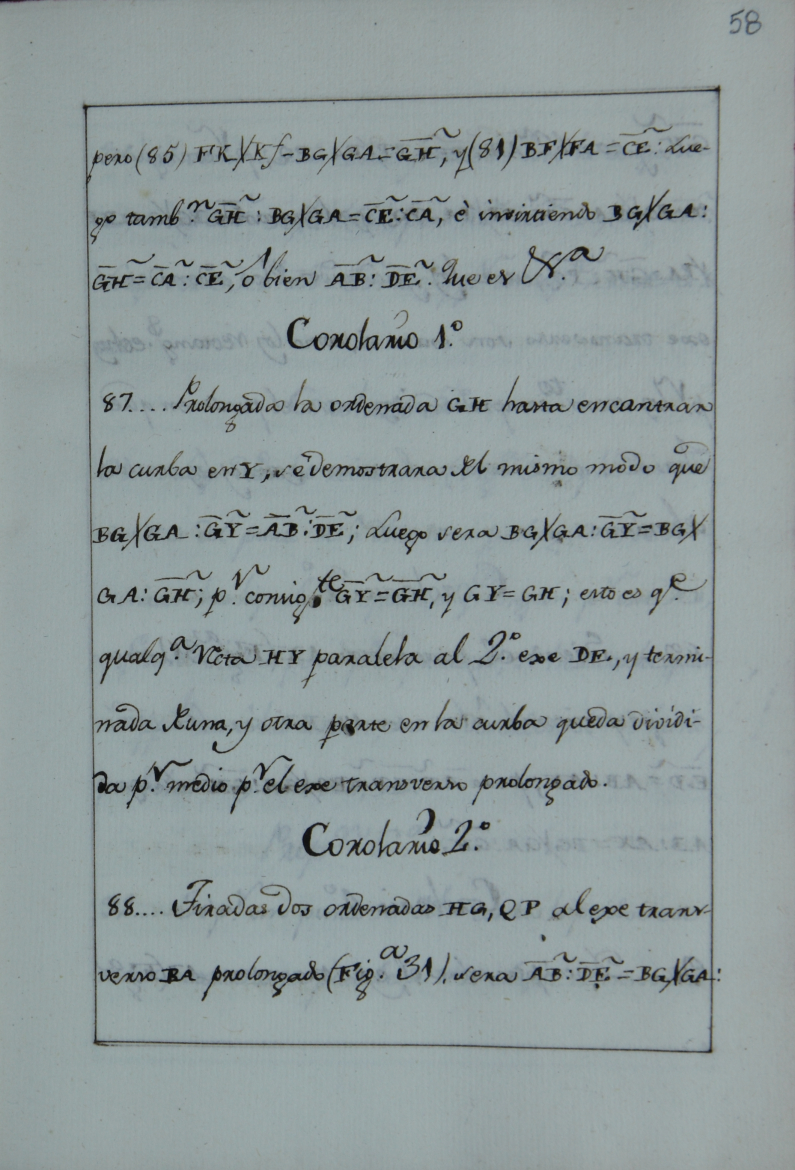 58
pero (85) FK╳Kf-BG╳GA=G͞H͠, y (81) BF╳FA=C͞E͠: Lue-
go tamb.ⁿ G͞H͠ : BG╳GA=C͞E͠:C͞A͠, è invirtiendo BG╳GA:
G͞H͠=C͞A͠:C͞E͠, ó bien A͞B͠:D͞E͠. Que es &.ª
Corolario 1.º
87.... Prolongada la ordenada GH hasta encontrar
la curba en Y, se demostrara del mismo modo que
BG╳GA:G͞Y͠=A͞B͠:D͞E͠; Luego sera BG╳GA:G͞Y͠=BG╳
GA:G͞H͠; p.ʳ consig.ᵗᵉ G͞Y͠=G͞H͠, y GY=GH; esto es q.ᵉ
qualq.ª Recta HY paralela al 2.º exe DE, y termi-
nada de una, y otra parte en la curba queda dividi-
da p.ʳ medio p.ʳ el exe transverso prolongado.
Corolario 2.º
88.... Tiradas dos ordenadas HG, QP al exe trans-
verso BA prolongado (Fig.ª 31), sera A͞B͠:D͞E͠=BG╳GA: